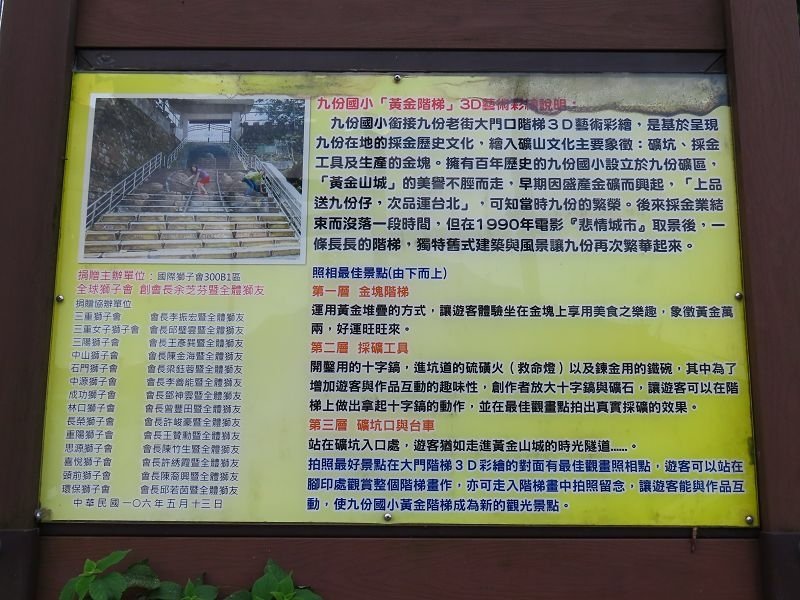 九份國小「黃金階梯」3D藝術彩繪說明：
九份國小銜接九份老街大門口階梯３Ｄ藝術彩繪，是基於呈現
九份在地的採金歷史文化，繪入礦山文化主要象徵：礦坑、採金
工具及生產的金塊。擁有百年歷史的九份國小設立於九份礦區，
「黃金山城」的美譽不脛而走，早期因盛產金礦而興起，「上品
送九份仔，次品運台北」，可知當時九份的繁榮。後來採金業結
束而沒落一段時間，但在1990年電影『悲情城市』取景後，一
條長長的階梯，獨特舊式建築與風景讓九份再次繁華起來。
照相最佳景點(由下而上)
第一層 金塊階梯
運用黃金堆疊的方式，讓遊客體驗坐在金塊上享用美食之樂趣，象徵黃金萬
兩，好運旺旺來。
第二層 採礦工具
開鑿用的十字鎬，進坑道的硫磺火（救命燈）以及鍊金用的鐵碗，其中為了
增加遊客與作品互動的趣味性，創作者放大十字鎬與礦石，讓遊客可以在階
梯上做出拿起十字鎬的動作，並在最佳觀畫點拍出真實採礦的效果。
第三層 礦坑口與台車
站在礦坑入口處，遊客猶如走進黃金山城的時光隧道……。
拍照最好景點在大門階梯３Ｄ彩繪的對面有最佳觀畫照相點，遊客可以站在
腳印處觀賞整個階梯畫作，亦可走入階梯畫中拍照留念，讓遊客能與作品互
動，使九份國小黃金階梯成為新的觀光景點。
捐贈主辦單位：國際獅子會300B1區
全球獅子會 創會長余芝芬暨全體獅友
捐贈協辦單位
三重獅子會 會長李振宏暨全體獅友
三重女子獅子會 會長邱璧雲暨全體獅友
三陽獅子會 會長王彥巽暨全體獅友
中山獅子會 會長陳金海暨全體獅友
石門獅子會 會長梁鈺蓉暨全體獅友
中源獅子會 會長李善能暨全體獅友
成功獅子會 會長鄧神雲暨全體獅友
林口獅子會 會長曾豐田暨全體獅友
長榮獅子會 會長許峻豪暨全體獅友
重陽獅子會 會長王贊勳暨全體獅友
思源獅子會 會長陳竹生暨全體獅友
喜悅獅子會 會長許綉霞暨全體獅友
頭前獅子會 會長陳裔興暨全體獅友
環保獅子會 會長邱若茵暨全體獅友
中華民國一〇六年五月十三日